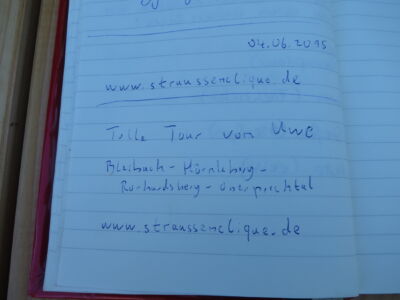 04.06.2015
www.straussenclique.de
Tolle Tour von Uwe
Bleibach - Hörnleberg -
Rohrhardsberg - Oberprechtal
www.straussenclique.de